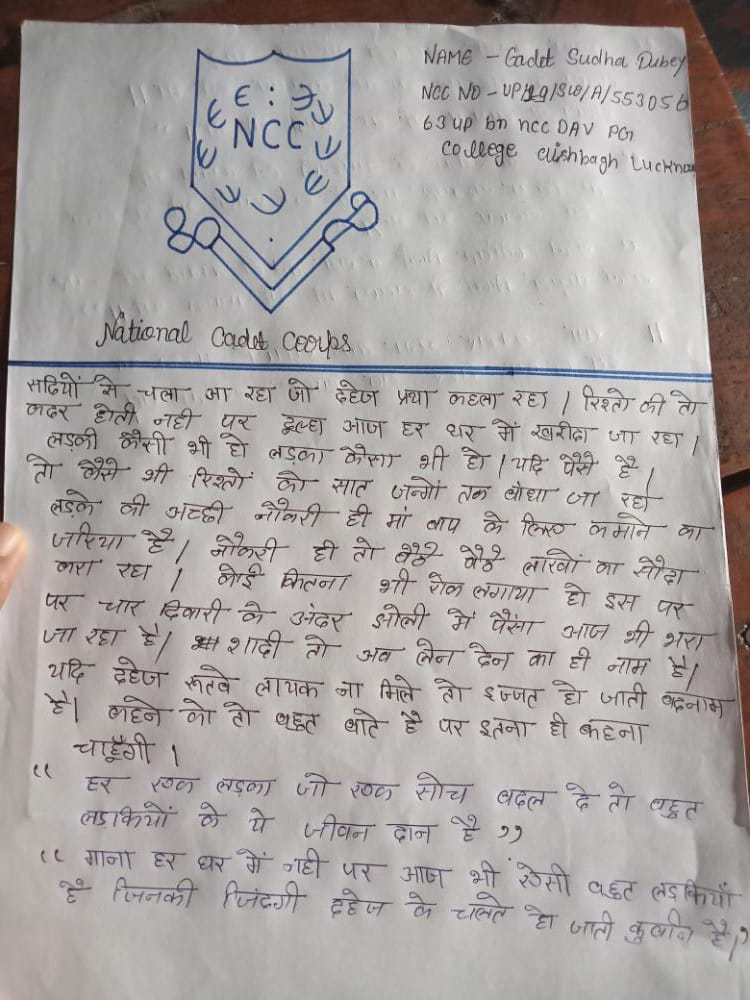 NAME - Cadet Sudha Dubey
NCC NO - UP/19/SW/A/553056
63 up bn ncc DAV PG
College Aishbagh Lucknow
NCC
National Cadet Coorps
सदियों से चला आ रहा जो दहेज प्रथा कहला रहा । रिश्तो की तो
कदर होती नही पर दूल्हा आज हर घर में खरीदा जा रहा ।
लड़की कैसी भी हो लड़का कैसा भी हो । यदि पैसे है ।
तो कैसे भी रिश्तों को सात जन्मों तक बांधा जा रहा
लड़के की अच्छी नौकरी ही मां बाप के लिए कमाने का
जरिया है । नौकरी ही तो बैठे बैठे लाखों का सौदा
करा रहा । कोई कितना भी रोक लगाया हो इस पर
पर चार दिवारी के अंदर झोली में पैसा आज भी भरा
जा रहा है । शादी तो अब लेन देन का ही नाम है ।
यदि दहेज रूतबे लायक ना मिले तो इज्जत हो जाती बदनाम
है । कहने को तो बहुत बाते है पर इतना ही कहना
चाहूँगी ।
“ हर एक लड़का जो एक सोच बदल दे तो बहुत
लड़कियों के ये जीवन दान है ”
“ माना हर घर में नही पर आज भी ऐसी बहुत लड़कियाँ
है जिनकी जिंदगी दहेज के चलते हो जाती कुर्बान है । ”